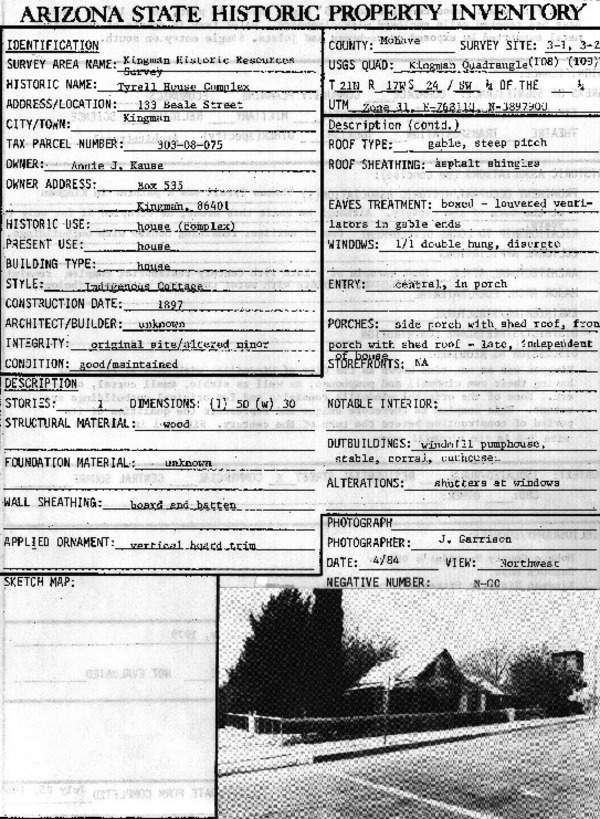 ARIZONA STATE HISTORIC PROPERTY INVENTORY
IDENTIFICATION
SURVEY AREA NAME: Kingman Historic Resources
Survey
HISTORIC NAME: Tyrell House Complex
ADDRESS/LOCATION: 133 Beale Street
CITY/TOWN: Kingman
TAX PARCEL NUMBER: 303-08-075
OWNER: Annie J. Kause
OWNER ADDRESS: Box 535
Kingman, 86401
HISTORIC USE: house (complex)
PRESENT USE: house
BUILDING TYPE: house
STYLE: Indigenous Cottage
CONSTRUCTION DATE: 1897
ARCHITECT/BUILDER: unknown
INTEGRITY: original site/altered minor
CONDITION: good/maintained
DESCRIPTION
STORIES: 1 DIMENSIONS: (l) 50 (w) 30
STRUCTURAL MATERIAL: wood
FOUNDATION MATERIAL: unknown
WALL SHEATHING: board and batten
APPLIED ORNAMENT: vertical board trim
SKETCH MAP:
COUNTY: Mohave SURVEY SITE: 3-1, 3-2
USGS QUAD: Kingman Quadrangle (108) (109)
T 21N R 17W S 24 / SW ¼ OF THE ¼
UTM Zone
Description (contd.)
ROOF TYPE: gable, steep pitch
ROOF SHEATHING: asphalt shingles
EAVES TREATMENT: boxed - louvered venti-
lators in gable ends
WINDOWS: 1/1 double hung, discrete
ENTRY: central, in porch
PORCHES: side porch with shed roof, fron
porch with shed roof - late, independent
of house
STOREFRONTS: NA
NOTABLE INTERIOR:
OUTBUILDINGS: windmill pumphouse,
stable, corral, outhouse
ALTERATIONS: shutters at windows
PHOTOGRAPH
PHOTOGRAPHER: J. Garrison
DATE: 4/84 VIEW: Northwest
NEGATIVE NUMBER: